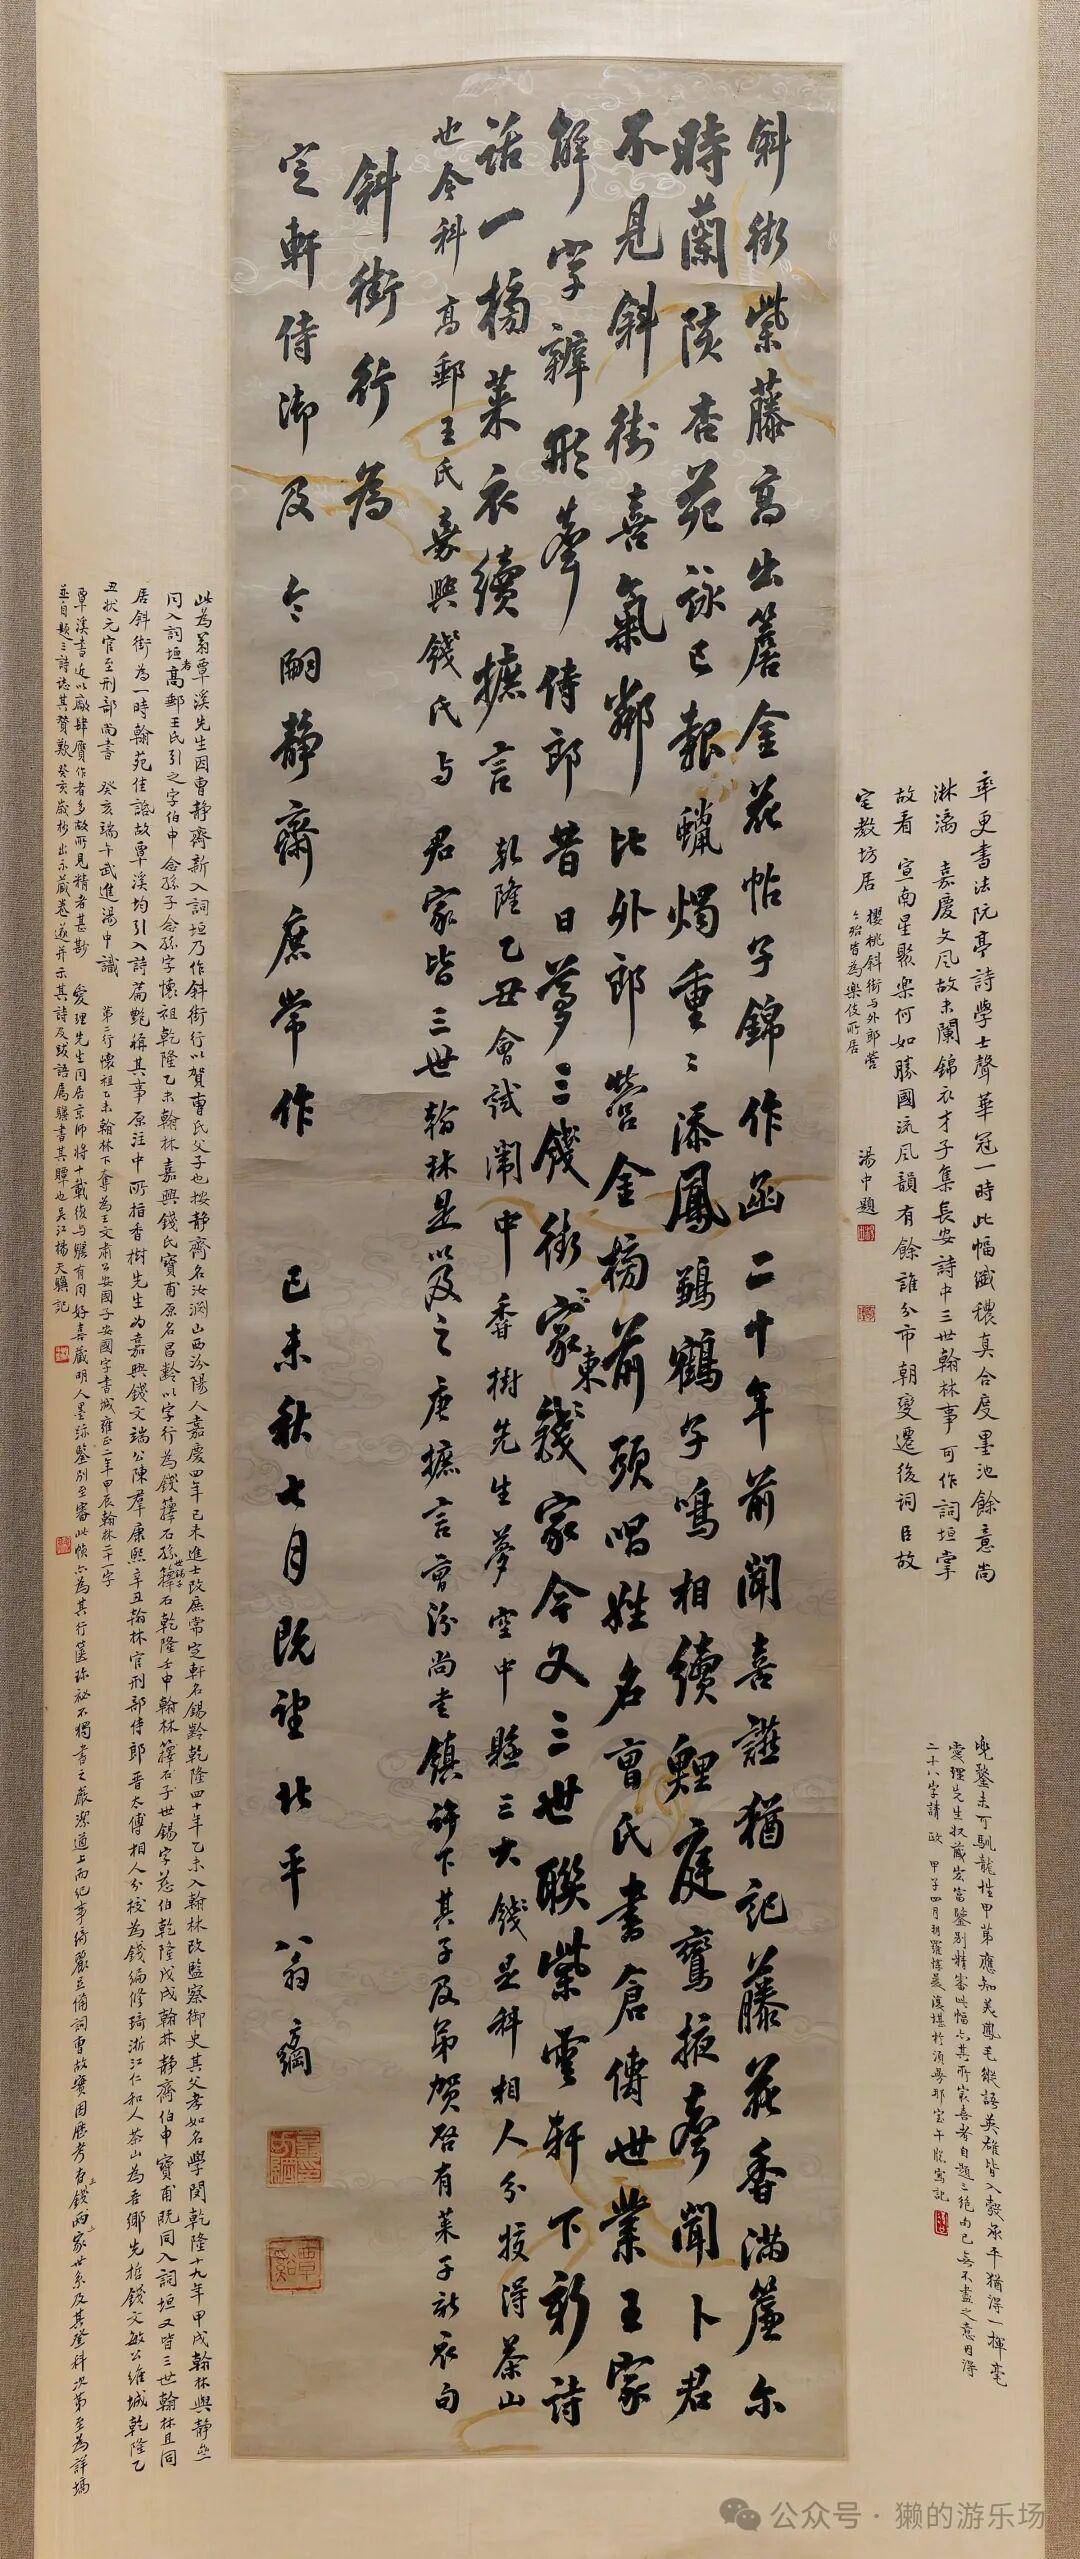 斜街紫藤高出簷金花帖子錦作函二十年前聞喜讌猶記藤花香滿簾尔
時蘭陔杏苑詠已報蠟燭重〻添鳳鷄鶴子鳴相續鯉庭鸞掖聲聞卜君
不見斜街喜氣鄰比外郎營金榜前頭唱姓名曹氏書倉傳世業王家
解字辨形聲侍郎昔日夢三錢街東錢家〻今又三世聯紫雲軒下新詩
話一榜萊衣續摭言
乾隆乙丑會試闈中香樹先生夢空中懸三大錢是科相人分校得茶山
也今科高郵王氏嘉興錢氏与君家皆三世翰林是以及之唐摭言曹汾尚書鎮許下其子及第賀啓有萊子新衣句
斜街行為
定軒侍御及令嗣靜齋庶常作 己未秋七月既望北平翁方綱
率更書法阮亭詩學士聲華冠一時此幅纖穠真合度墨池餘意尚
淋漓 嘉慶文風故未闌錦衣才子集長安詩中三世翰林事可作詞垣掌
故看 宣南星聚樂何如勝國流風韻有餘誰分市朝變遷後詞臣故
宅教坊居 櫻桃斜街与外郎營今殆皆為樂伎所居 湯中題
兜鍪未可馴龍性甲第應知美鳳毛縱語英雄皆入彀承平猶得一揮毫
愛理先生收藏宏富鑒別精審此幅亦其所最喜者自題三絕句已無不盡之意因得
二十八字請政 甲子四月
此為翁覃溪先生因曹靜齋新入詞垣乃作斜街行以賀曹氏父子也按靜齋名汝淵山西汾陽人嘉慶四年己未進士改庶常定軒名錫齡乾隆四十年乙未入翰林改監察御史其父孝如名學閔乾隆十九年甲戌翰林與靜齋
同入詞垣者高郵王氏引之字伯申念孫子念孫字懷祖乾隆乙未翰林嘉興錢氏寶甫原名昌齡以字行為錢籜石孫世錫子籜石乾隆壬申翰林籜石子世錫字慈伯乾隆戊戌翰林靜齋伯申寶甫既同入詞垣又皆三世翰林且同
居斜街為一時翰苑佳話故覃溪均引入詩篇艷稱其事原注中所指香樹先生為嘉興錢文端公陳羣康熙辛丑翰林官刑部侍郎晋太傅相人分校為錢編修琦浙江仁和人茶山為吾鄉先哲錢文敏公維城乾隆乙
丑狀元官至刑部尚書 癸亥端午武進湯中識 第二行懷祖乙未翰林下奪為王文肅公安國子安國字書城雍正二年甲辰翰林二十一字
覃溪書近以廠肆贋作者多故所見精者甚尠 愛理先生同居京師將十載復与驥有同好喜藏明人墨跡鑒別至審此幀亦為其行篋珍祕不獨書之嚴潔遒上而紀事綺麗足備詞曹故實因歷考曹王錢兩家世系及其登科次第至為詳塙
並自題三詩誌其贊歎癸亥歲杪出示藏卷遂并示其詩及跋語屬驥書其隙也吳江楊天驥記
公众号 · 獭的游乐场